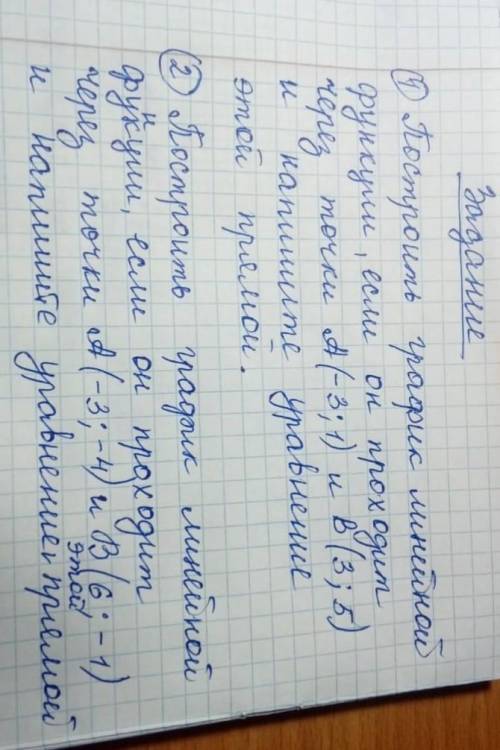 Задание
① Построить график линейной
функции, если он проходит
через точки A(-3; 1) и B(3; 5)
и напишите уравнение
этой прямой.
② Построить график линейной
функции, если он проходит
через точки A(-3; -4) и B(6; -1)
и напишите уравнение этой прямой